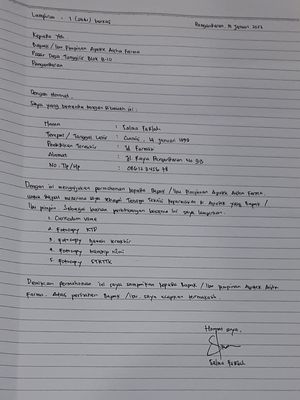 Lampiran : 1 (satu) berkas
Pangandaran, 14 Januari 2022
Kepada Yth
Bapak / Ibu Pimpinan Apotek Aisha Farma
Pasar Desa Tunggilis Blok B-10
Pangandaran
Dengan Hormat,
Saya yang bertanda tangan dibawah ini :
Nama : Salwa Fadilah
Tempat / Tanggal Lahir : Ciamis, 14 Januari 1999
Pendidikan Terakhir : D3 Farmasi
Alamat : Jl. Raya Pangandaran No 313
NO. Tlp / Hp :
Dengan ini mengajukan permohonan kepada Bapak / Ibu Pimpinan Apotek Aisha Farma,
untuk dapat menerima saya sebagai Tenaga Teknis Kefarmasian di Apotek yang Bapak /
Ibu pimpin. Sebagai bahan pertimbangan bersama ini saya lampirkan :
1. Curiculum Vitae
2. Fotocopy KTP
3. Fotocopy Ijazah terakhir
4. Fotocopy transkip nilai
5. Fotocopy STRTTK
Demikian permohonan ini saya sampaikan kepada Bapak / Ibu Pimpinan Apotek Aisha
Farma. Atas perhatian Bapak / Ibu, saya ucapkan terimakasih.
Hormat saya,
Salwa Fadilah